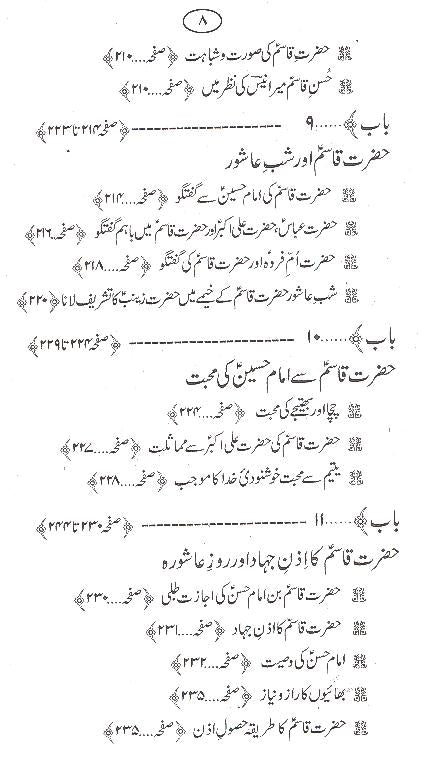 ۸
حضرتِ قاسمؑ کی صورت و شباہت ﴿صفحہ....۲۱۰﴾
حُسنِ قاسمؑ میر انیسؔ کی نظر میں ﴿صفحہ....۲۱۰﴾
باب ﴾......۹ ---------------------- ﴿صفحہ ۲۱۴ تا ۲۲۳﴾
حضرت قاسمؑ اور شبِ عاشور
حضرت قاسمؑ کی امام حسینؑ سے گفتگو ﴿صفحہ....۲۱۴﴾
حضرت عباسؑ، حضرت علی اکبرؑ اور حضرت قاسمؑ میں باہم گفتگو ﴿صفحہ...۲۱۶﴾
حضرت اُمِّ فروہؑ اور حضرت قاسمؑ کی گفتگو ﴿صفحہ....۲۱۸﴾
شبِ عاشور حضرت قاسمؑ کے خیمے میں حضرت زینبؑ کا تشریف لانا ﴿۲۲۰﴾
باب ﴾......۱۰ ---------------------- ﴿صفحہ ۲۲۴ تا ۲۲۹﴾
حضرت قاسمؑ سے امام حسینؑ کی محبت
چچا اور بھتیجے کی محبت ﴿صفحہ....۲۲۴﴾
حضرت قاسمؑ کی حضرت علی اکبرؑ سے مماثلت ﴿صفحہ....۲۲۷﴾
یتیم سے محبت خوشنودیٔ خدا کا موجب ﴿صفحہ....۲۲۸﴾
باب ﴾......۱۱ ---------------------- ﴿صفحہ ۲۳۰ تا ۲۴۴﴾
حضرت قاسمؑ کا اِذنِ جہاد اور روزِ عاشورہ
حضرت قاسمؑ بن امام حسنؑ کی اجازت طلبی ﴿صفحہ....۲۳۰﴾
حضرت قاسمؑ کا اذنِ جہاد ﴿صفحہ....۲۳۱﴾
امام حسنؑ کی وصیت ﴿صفحہ....۲۳۲﴾
بھائیوں کا راز و نیاز ﴿صفحہ....۲۳۵﴾
حضرت قاسمؑ کا طریقہ حصولِ اذن ﴿صفحہ....۲۳۵﴾